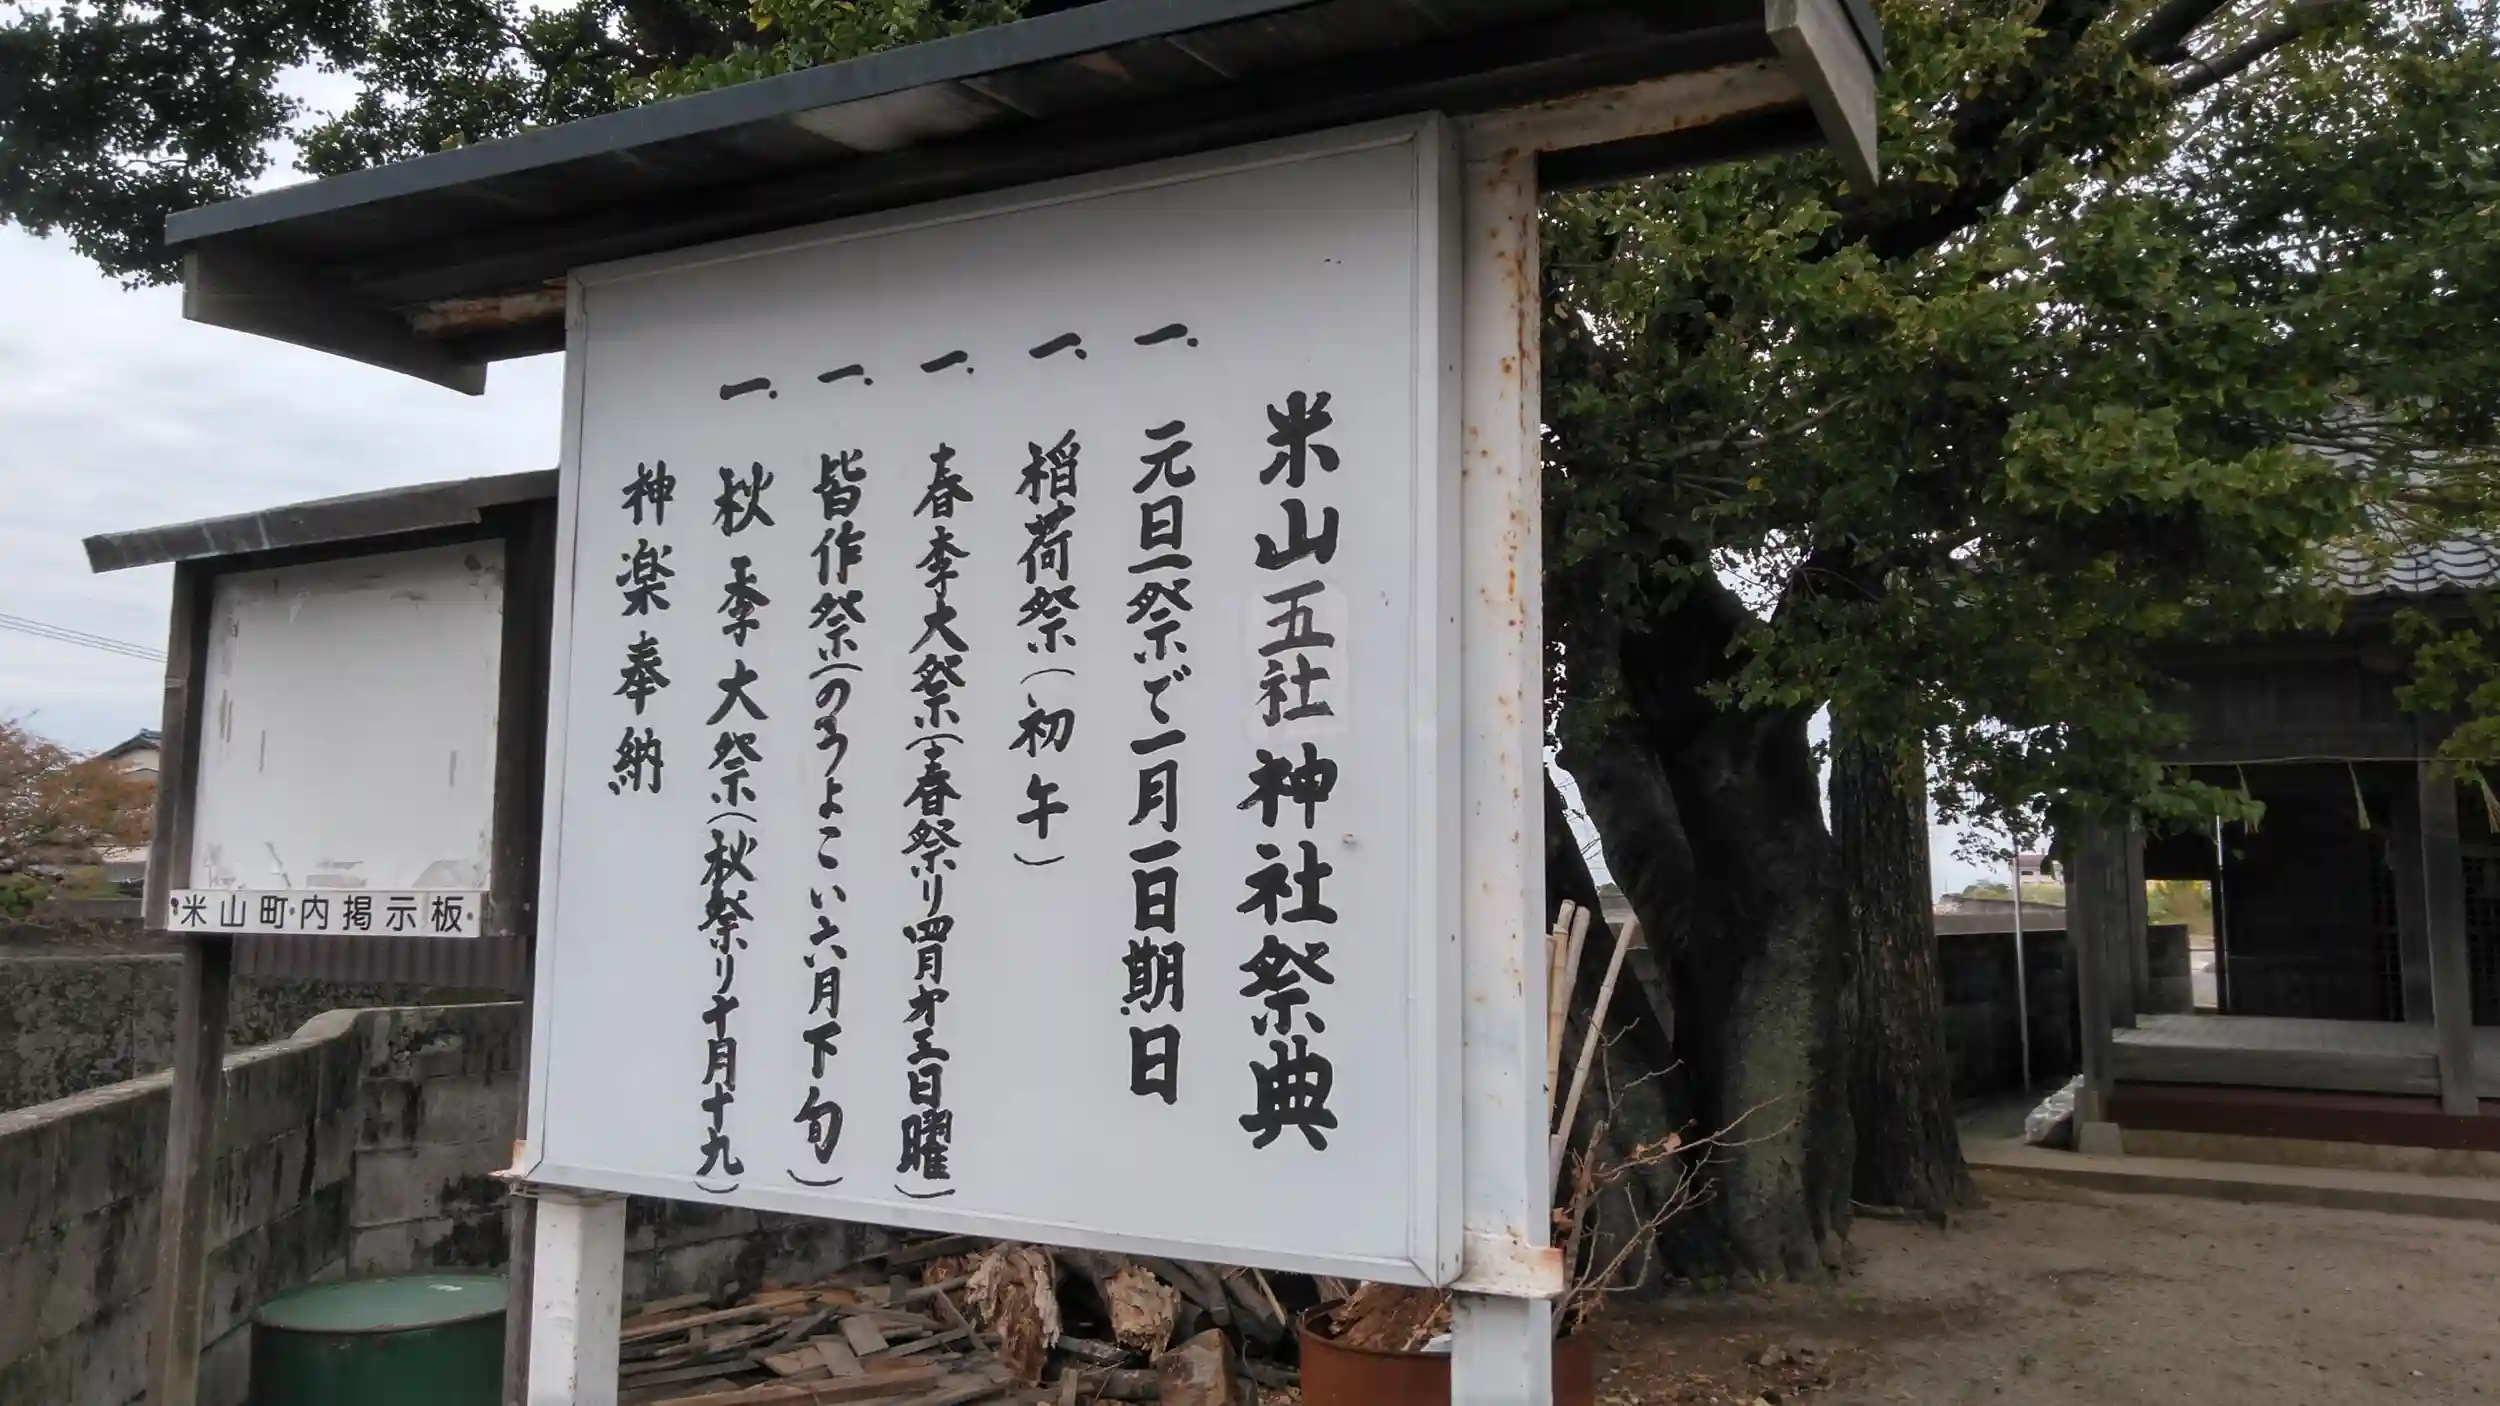 米山五社神社祭典
一. 元旦祭で一月一日期日
一. 稲荷祭(初午)
一. 春季大祭(春祭り四月才三日曜)
一. 皆作祭(のうよこい六月下旬)
一. 秋季大祭(秋祭り十月十九)
神楽奉納
米山町・内掲示板